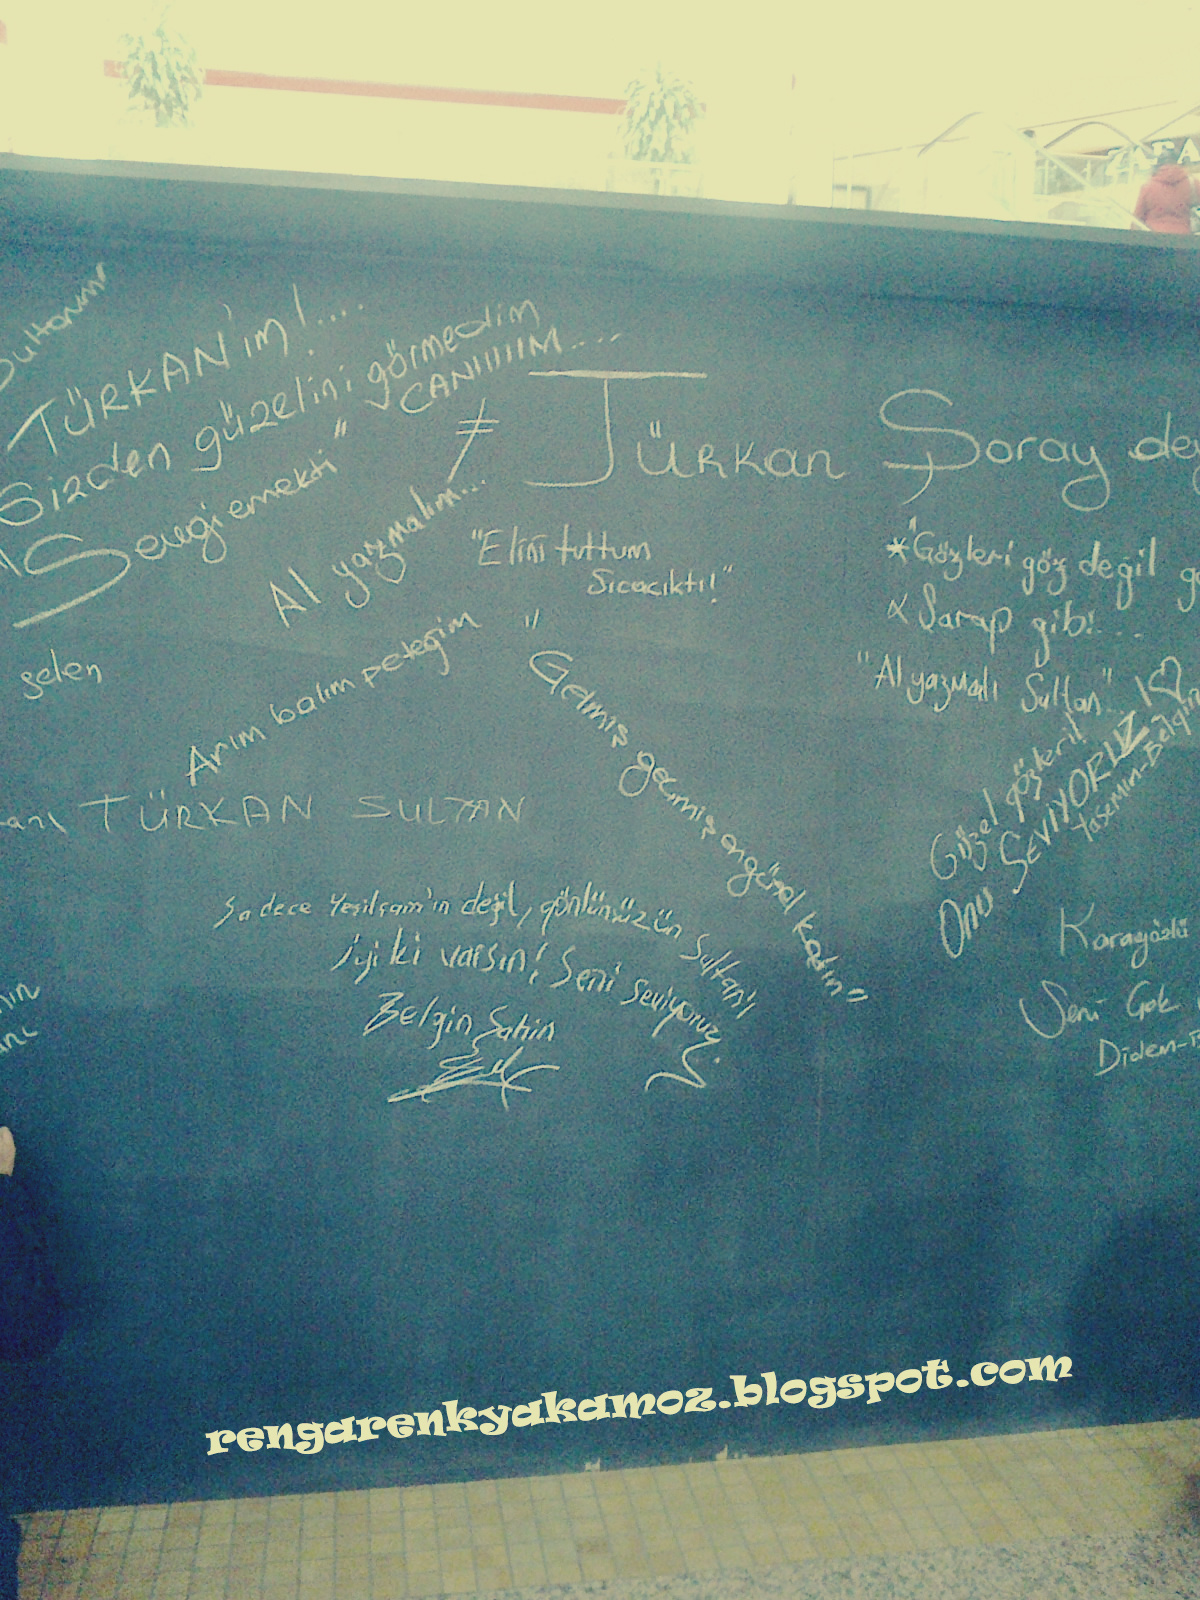 Sultanım!
TÜRKAN'ım!....
Sizden güzelini görmedim
CANIIIIM....
"Sevgi emekti"
Türkan Şoray
Al yazmalım...
"Elini tuttum
sıcacıktı!"
*"Gözleri göz değil
Şarap gibi...
"Al yazmalı Sultan"...
selen
Arım balım peteğim
"Gelmiş geçmiş en güzel kadın"
TÜRKAN SULTAN
Güzel gözleri!
Onu SEVİYORUZ
Yasemin-Belgin
Sadece Yeşilçam'ın değil, gönlünüzün Sultan'ı
iyi ki varsın! Seni seviyoruz.
Belgin Şahin
Karagözlü
Seni Çok
Didem-
ZARA
rengarenkyakamoz.blogspot.com